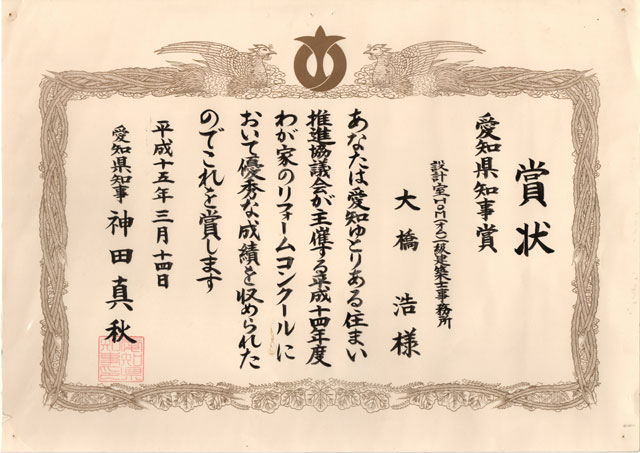 賞状
愛知県知事賞
設計室HOM(オム)一級建築士事務所
大橋浩様
あなたは愛知ゆとりある住まい
推進協議会が主催する平成十四年度
わが家のリフォームコンクールに
おいて優秀な成績を収められた
のでこれを賞します
平成十五年三月十四日
愛知県知事 神田真秋